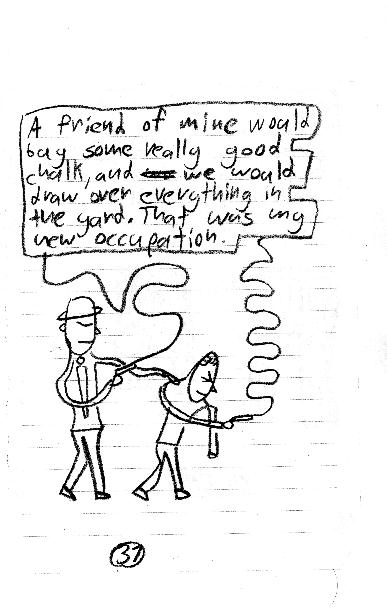 A friend of mine would
buy some really good
chalk, and we would
draw over everything in
the yard. That was my
new occupation.
37